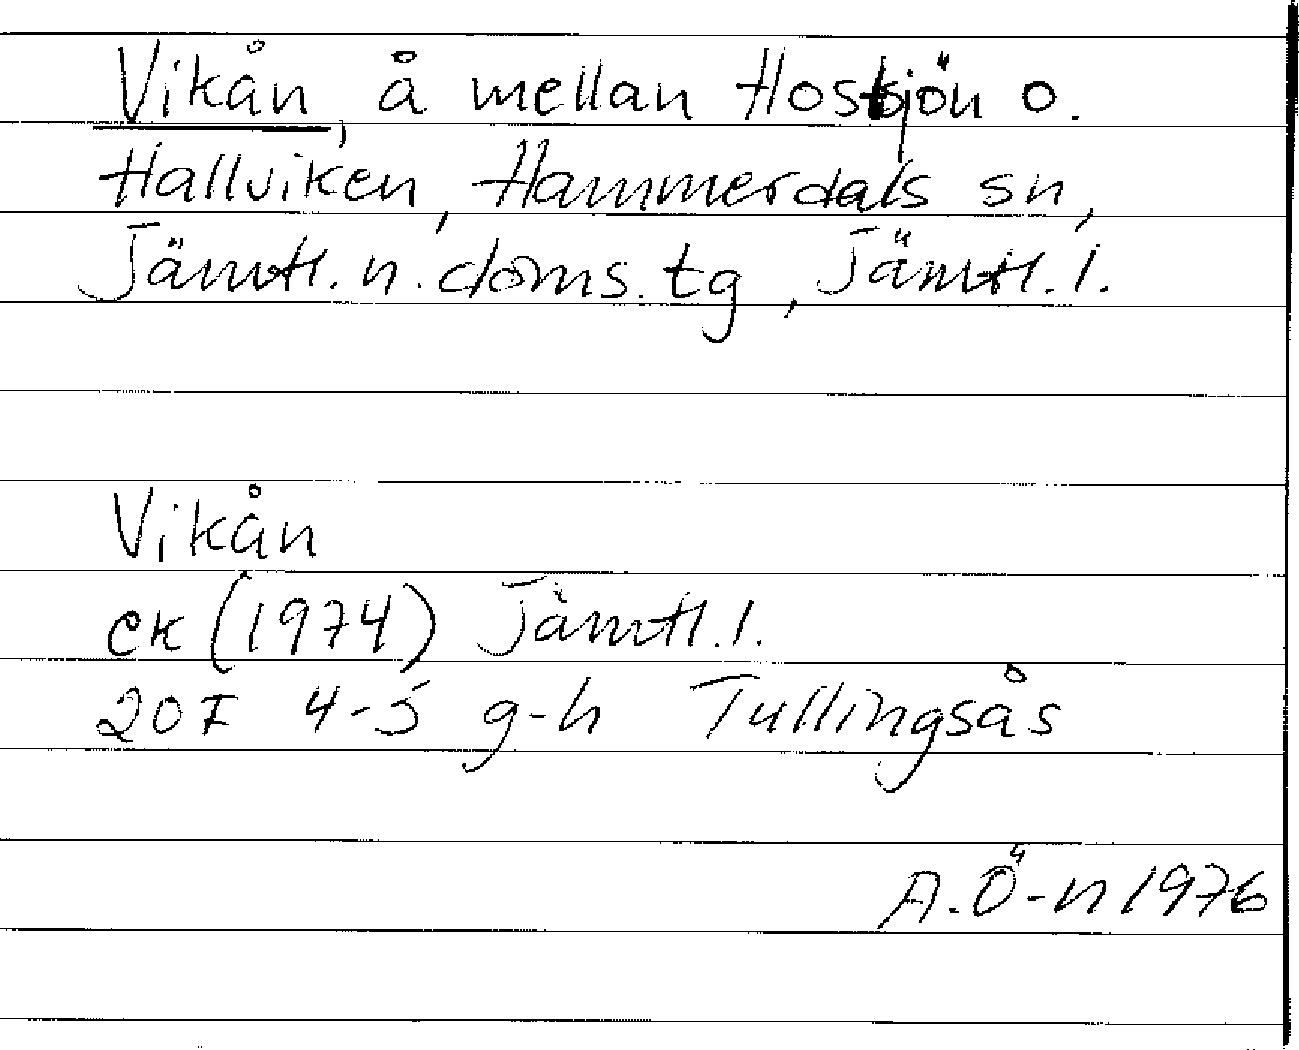 Vikån, å mellan Hostsjön o.
Hallviken, Hammerdals sn,
Jämtl. n. doms. tg, Jämtl. l.
Vikån
ek (1974) Jämtl. l.
20F 4-5 g-h Tullingsås
A. Ö-n 1976